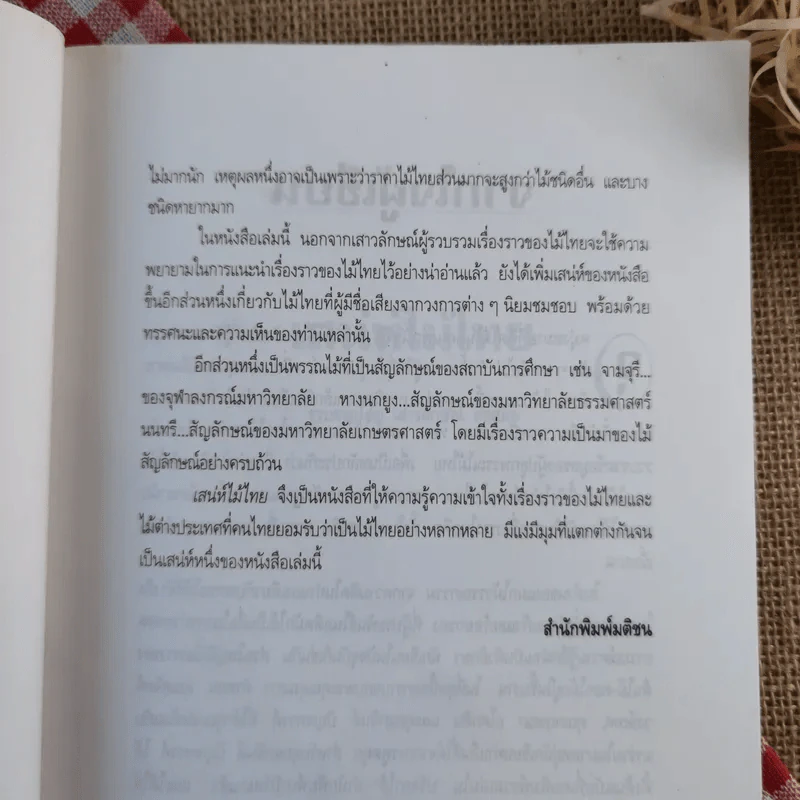 ไม่มากนัก เหตุผลหนึ่งอาจเป็นเพราะว่าราคาไม้ไทยส่วนมากจะสูงกว่าไม้ชนิดอื่น และบาง
ชนิดหายากมาก
ในหนังสือเล่มนี้ นอกจากเสาวลักษณ์ผู้รวบรวมเรื่องราวของไม้ไทยจะใช้ความ
พยายามในการแนะนำเรื่องราวของไม้ไทยไว้อย่างน่าอ่านแล้ว ยังได้เพิ่มเสน่ห์ของหนังสือ
ขึ้นอีกส่วนหนึ่งเกี่ยวกับไม้ไทยที่ผู้มีชื่อเสียงจากวงการต่าง ๆ นิยมชมชอบ พร้อมด้วย
ทรรศนะและความเห็นของท่านเหล่านั้น
อีกส่วนหนึ่งเป็นพรรณไม้ที่เป็นสัญลักษณ์ของสถาบันการศึกษา เช่น จามจุรี...
ของจุฬาลงกรณ์มหาวิทยาลัย หางนกยูง...สัญลักษณ์ของมหาวิทยาลัยธรรมศาสตร์
นนทรี...สัญลักษณ์ของมหาวิทยาลัยเกษตรศาสตร์ โดยมีเรื่องราวความเป็นมาของไม้
สัญลักษณ์อย่างครบถ้วน
เสน่ห์ไม้ไทย จึงเป็นหนังสือที่ให้ความรู้ความเข้าใจทั้งเรื่องราวของไม้ไทยและ
ไม้ต่างประเทศที่คนไทยยอมรับว่าเป็นไม้ไทยอย่างหลากหลาย มีแง่มีมุมที่แตกต่างกันจน
เป็นเสน่ห์หนึ่งของหนังสือเล่มนี้
สำนักพิมพ์มติชน